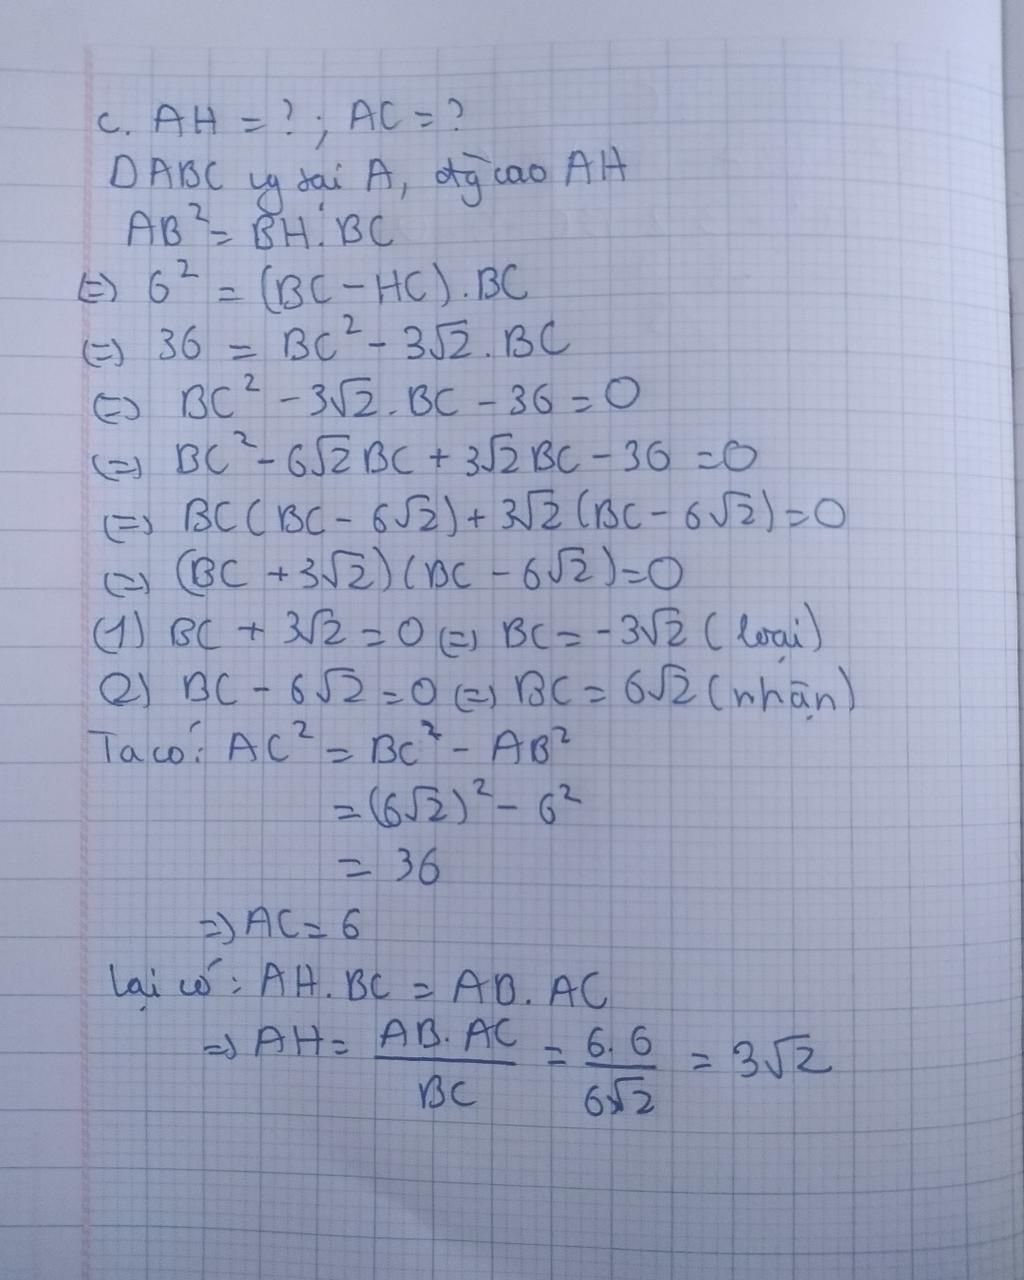 c. AH = ? ; AC = ?
DABC vg tại A, đg cao AH
AB² = BH.BC
(=) 6² = (BC - HC).BC
(=) 36 = BC² - 3√2.BC
(=) BC² - 3√2.BC - 36 = 0
(=) BC² - 6√2BC + 3√2BC - 36 = 0
(=) BC(BC - 6√2) + 3√2(BC - 6√2) = 0
(=) (BC + 3√2)(BC - 6√2) = 0
(1) BC + 3√2 = 0 (=) BC = -3√2 (loại)
(2) BC - 6√2 = 0 (=) BC = 6√2 (nhận)
Ta có: AC² = BC² - AB²
= (6√2)² - 6²
= 36
=> AC = 6
Lại có: AH.BC = AB.AC
=> AH = AB.AC / BC = 6.6 / 6√2 = 3√2